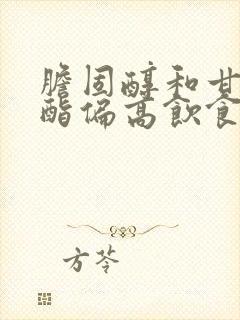 胆固醇和甘
酯偏高飲食
方芩